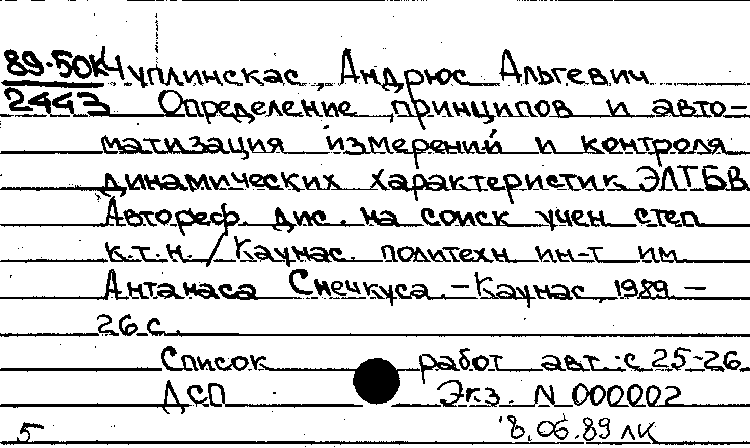 89-50К Чуплинскас, Андрюс Альгевич
2443 Определение принципов и авто-
матизация измерений и контроля
динамических характеристик ЭЛТБВ
Автореф. дис. на соиск учен степ
к.т.н. / Каунас. политехн ин-т им
Антанаса Снечкуса. - Каунас, 1989 -
26 с.
Список работ авт.: с 25-26
ДСП Экз. N 000002
5 8.06.89 ЛК